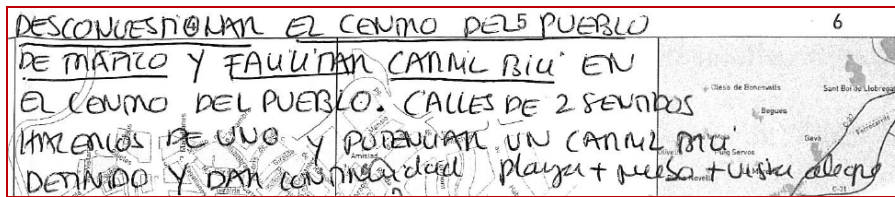 DESCONGESTIONAR EL CENTRO DEL PUEBLO
5
6
DE TRÁFICO Y FACILITAR CARRIL BICI EN
EL CENTRO DEL PUEBLO. CALLES DE 2 SENTIDOS
HACERLOS DE UNO Y POTENCIAR UN CARRIL BICI
DEFINIDO Y DAR CONTINUIDAD playa + + vista alegre
Olesa de Bonesvalls
Sant Boi de Llobregat
Begues
Gavà
C-31